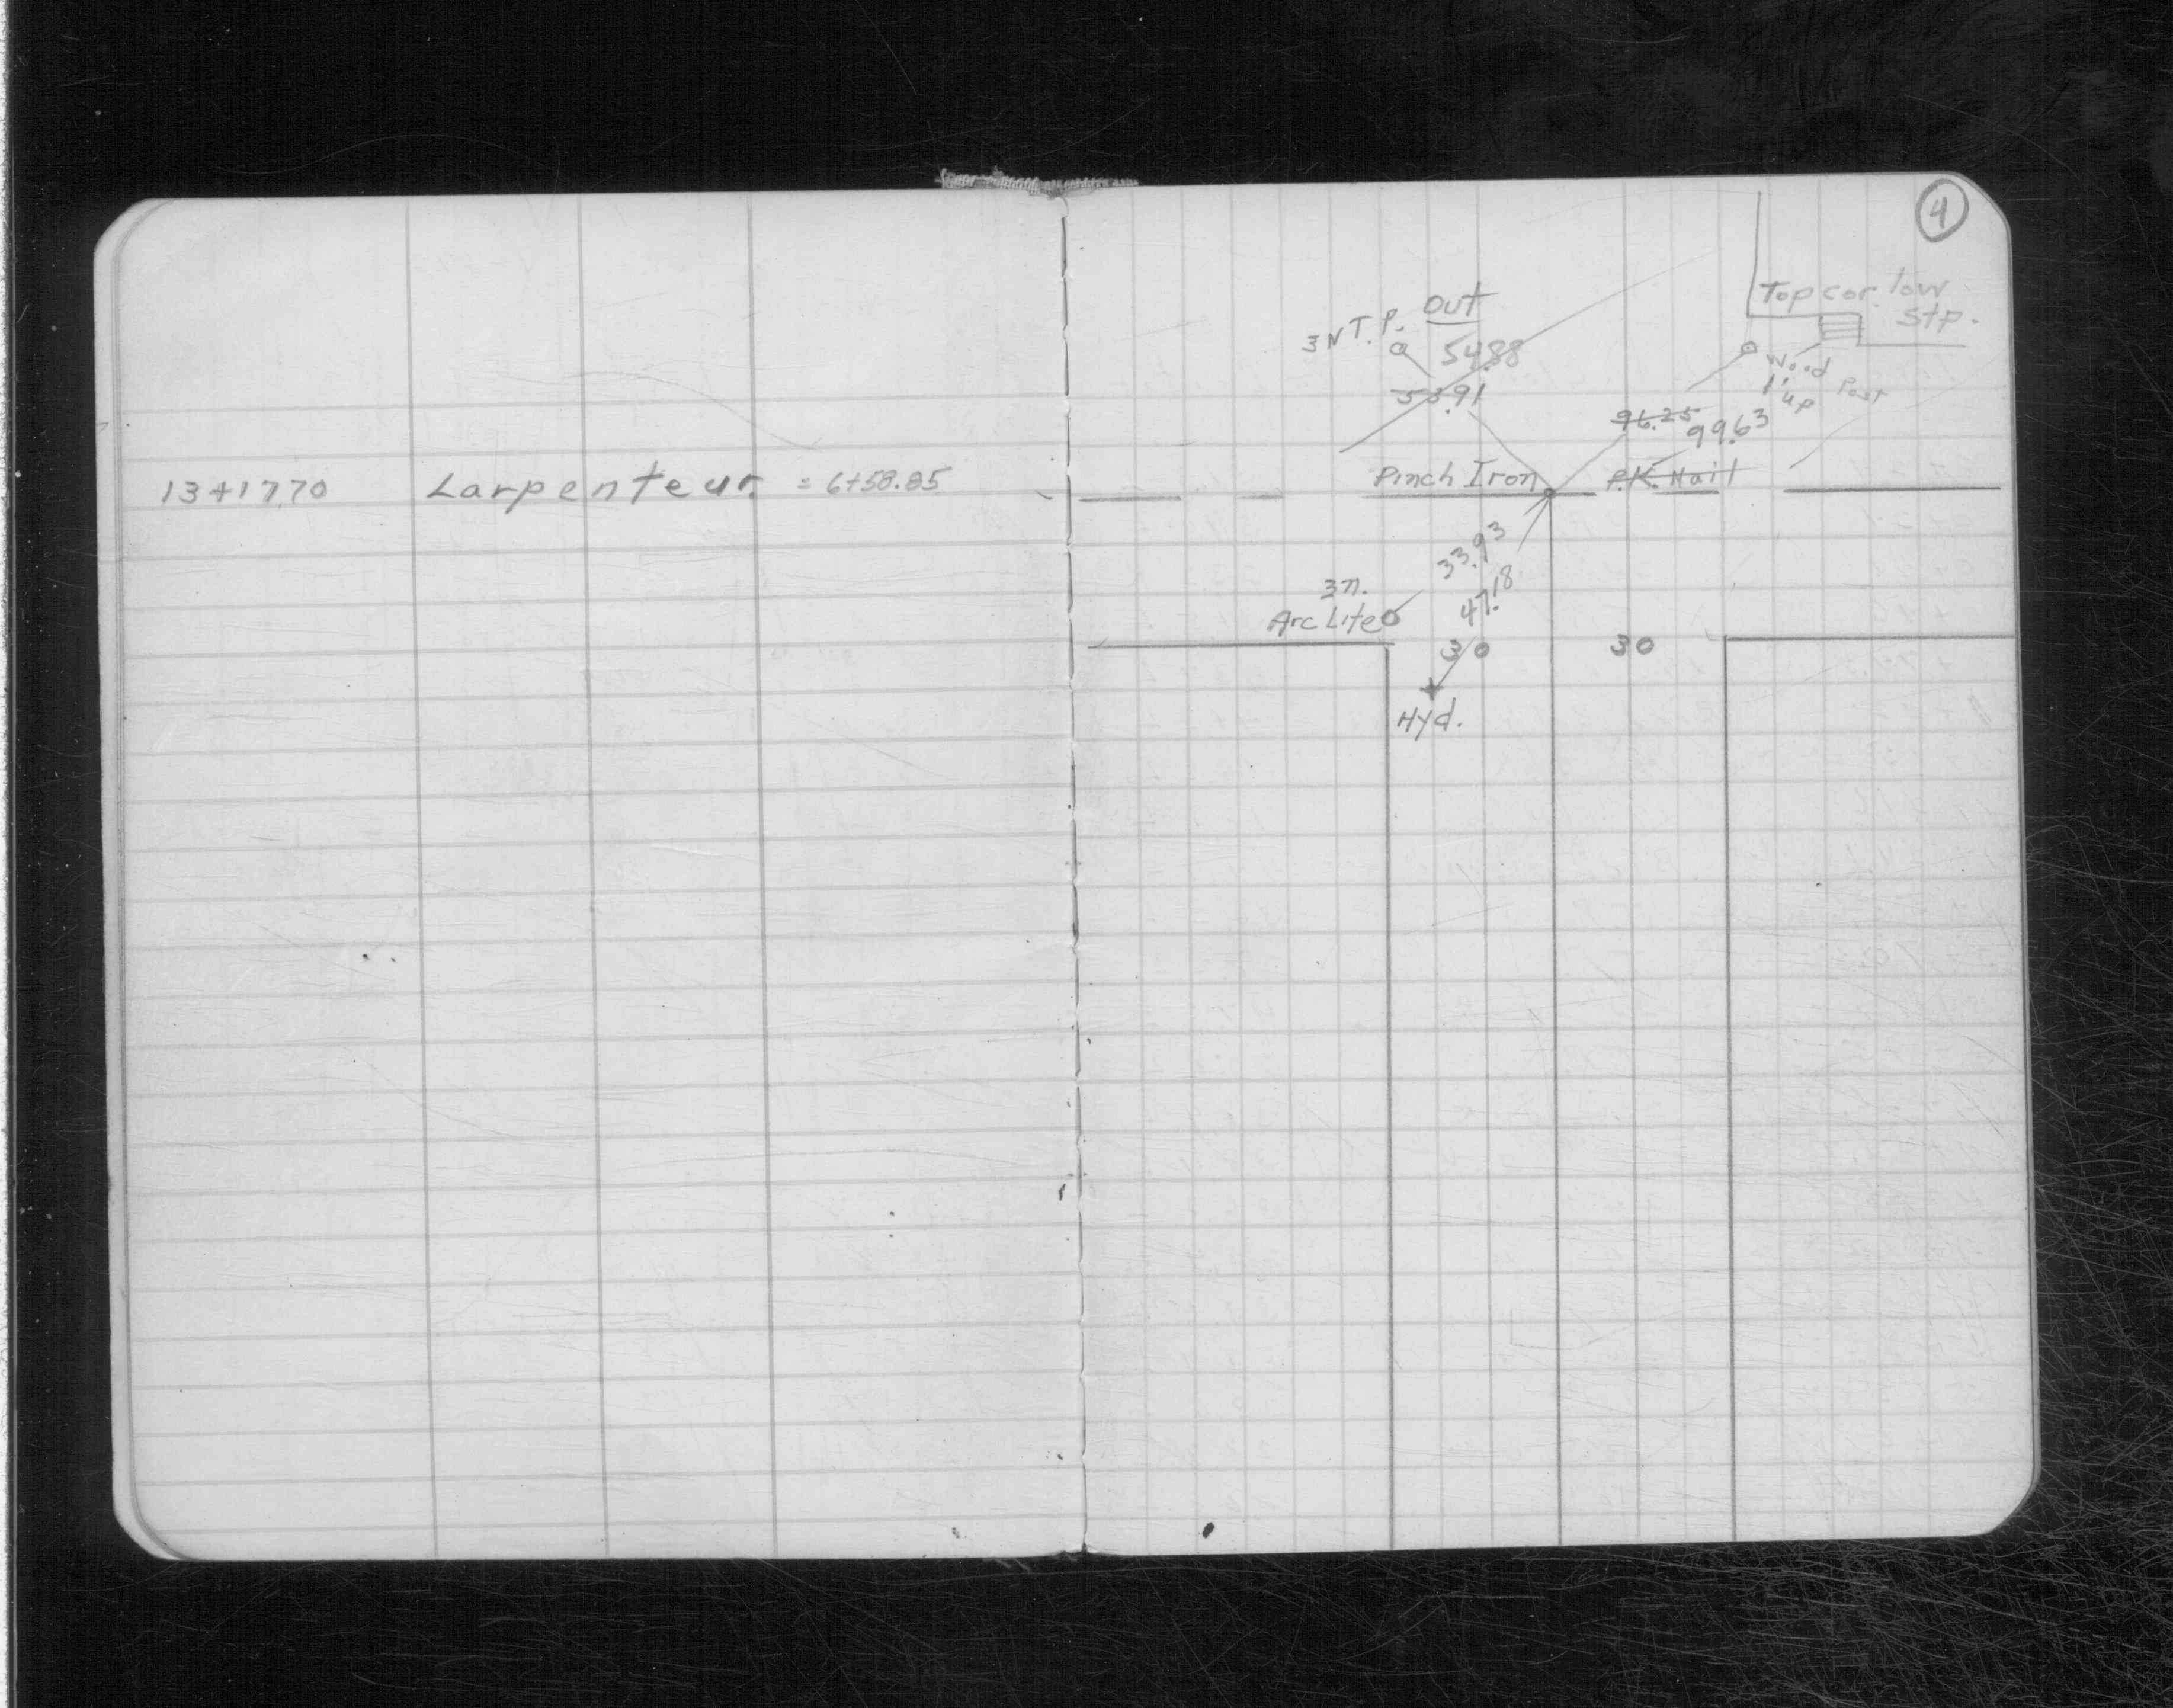 13+17.70 Larpenteur = 6+58.85
4
Top cor. low
stp.
Out
3 N T. P.
54.88
53.91
Wood Post
1' up
96.25
99.63
Pinch Iron
P.K. Nail
33.93
47.18
3 n.
Arc Lite
30
30
Hyd.